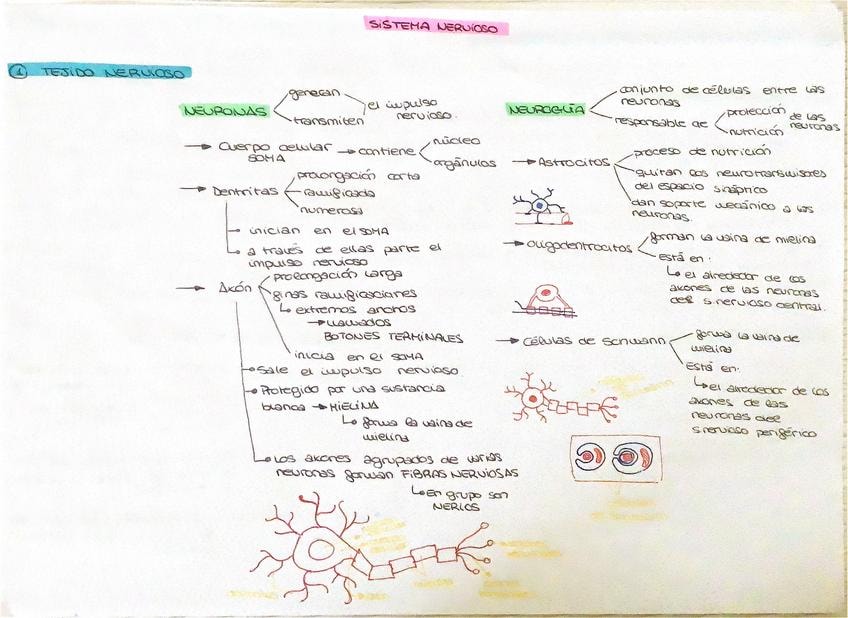 SISTEMA NERVIOSO
① TEJIDO NERVIOSO
NEURONAS
generan
transmiten
el impulso
nervioso.
→ Cuerpo celular
SOMA
→ contiene
núcleo
orgánulos
→ Dentritas
prolongación corta
ramificada
numerosa
inician en el SOMA
a través de ellas parte el
impulso nervioso
→ Axón
prolongación larga
finas ramificaciones
extremos anchos
→ llamados
BOTONES TERMINALES
inicia en el SOMA
Sale el impulso nervioso
Protegido por una sustancia
blanca → MIELINA
forma la vaina de
mielina
Los axones agrupados de varias
neuronas forman FIBRAS NERVIOSAS
En grupo son
NERIOS
NEUROGLIA
conjunto de células entre las
neuronas
responsable de
protección
nutrición
de las
neuronas
→ Astrocitos
proceso de nutrición
quitan los neurotransmisores
del espacio sináptico
dan soporte mecánico a las
neuronas.
→ Oligodentrocitos
forman la vaina de mielina
Está en:
el alrededor de los
axones de las neuronas
del s.nervioso central.
→ Células de Schwann
forma la vaina de
mielina
Está en:
el alrededor de los
axones de las
neuronas del
s.nervioso periférico